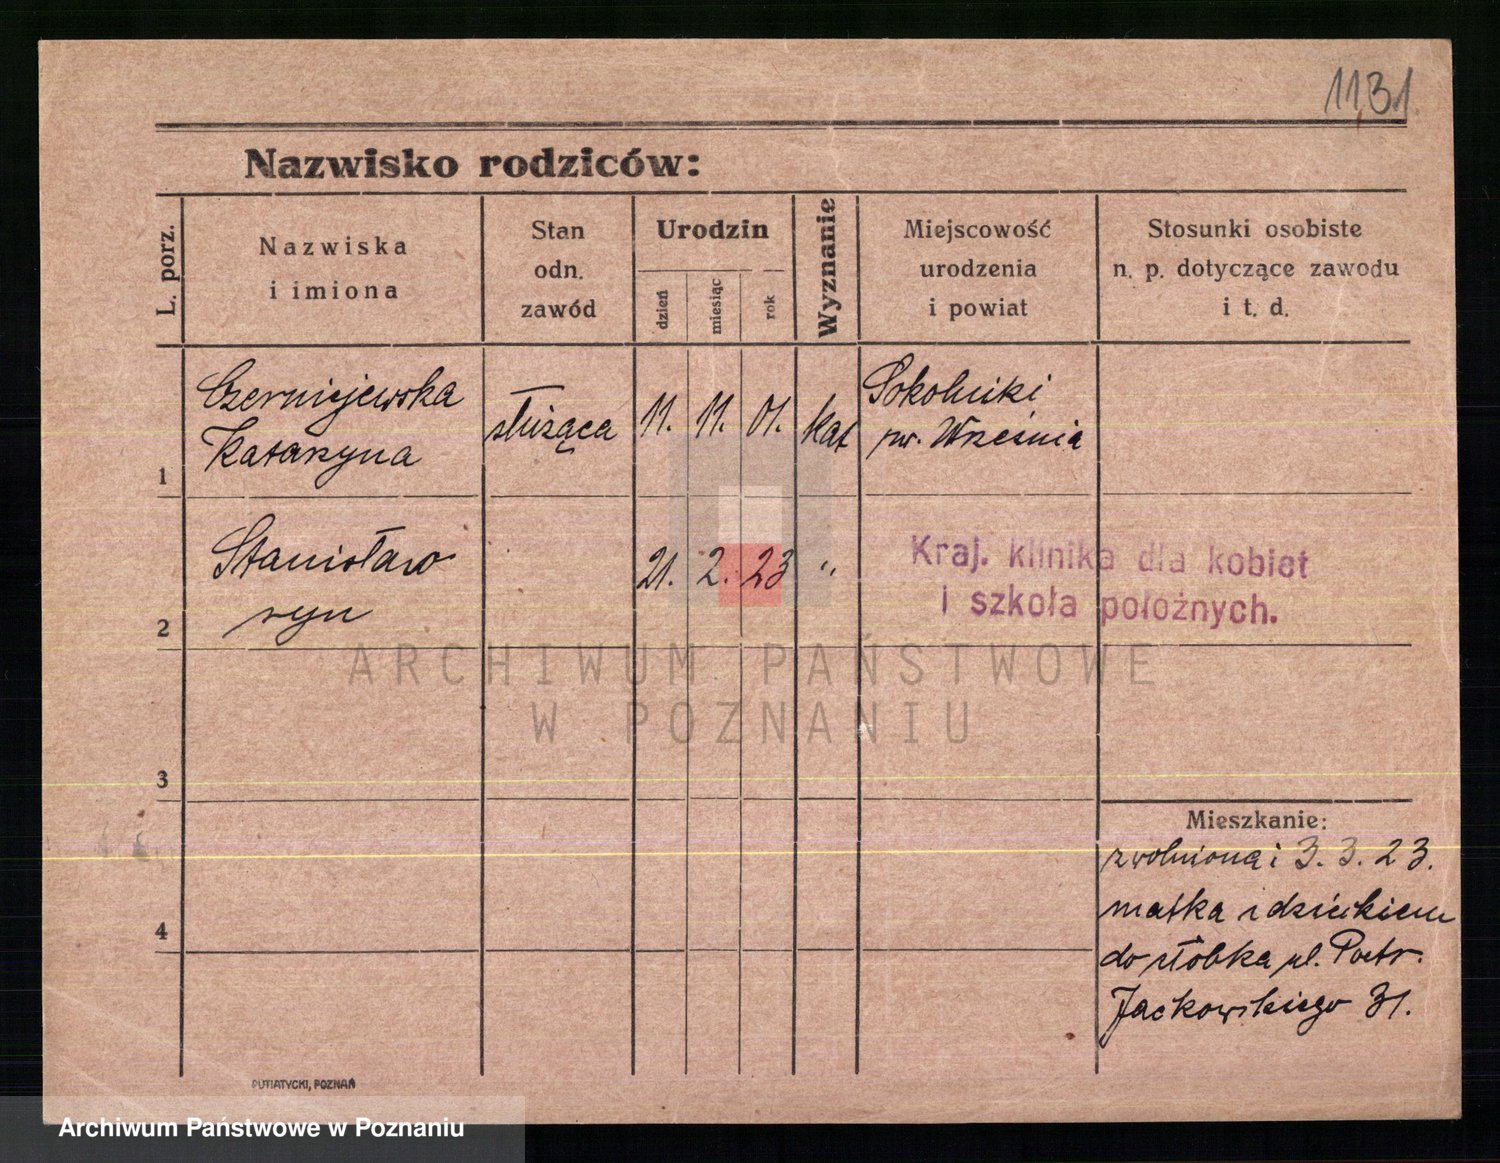 1131.
Nazwisko rodziców:
L. porz.
Nazwiska
i imiona
Stan
odn.
zawód
Urodzin
dzień
miesiąc
rok
Wyznanie
Miejscowość
urodzenia
i powiat
Stosunki osobiste
n. p. dotyczące zawodu
i t. d.
1
Czerniejewska
Katarzyna
służąca
11. 11. 01.
kat
Sokolniki
pw. Września
2
Stanisław
syn
21. 2. 23
"
Kraj. klinika dla kobiet
i szkoła położnych.
ARCHIWUM PAŃSTWOWE
W POZNANIU
3
4
Mieszkanie:
zwolniona i 3. 3. 23.
matka z dzieckiem
do żłóbka ul. Poctr.
Jackowskiego 31.
PUTIATYCKI, POZNAŃ
Archiwum Państwowe w Poznaniu